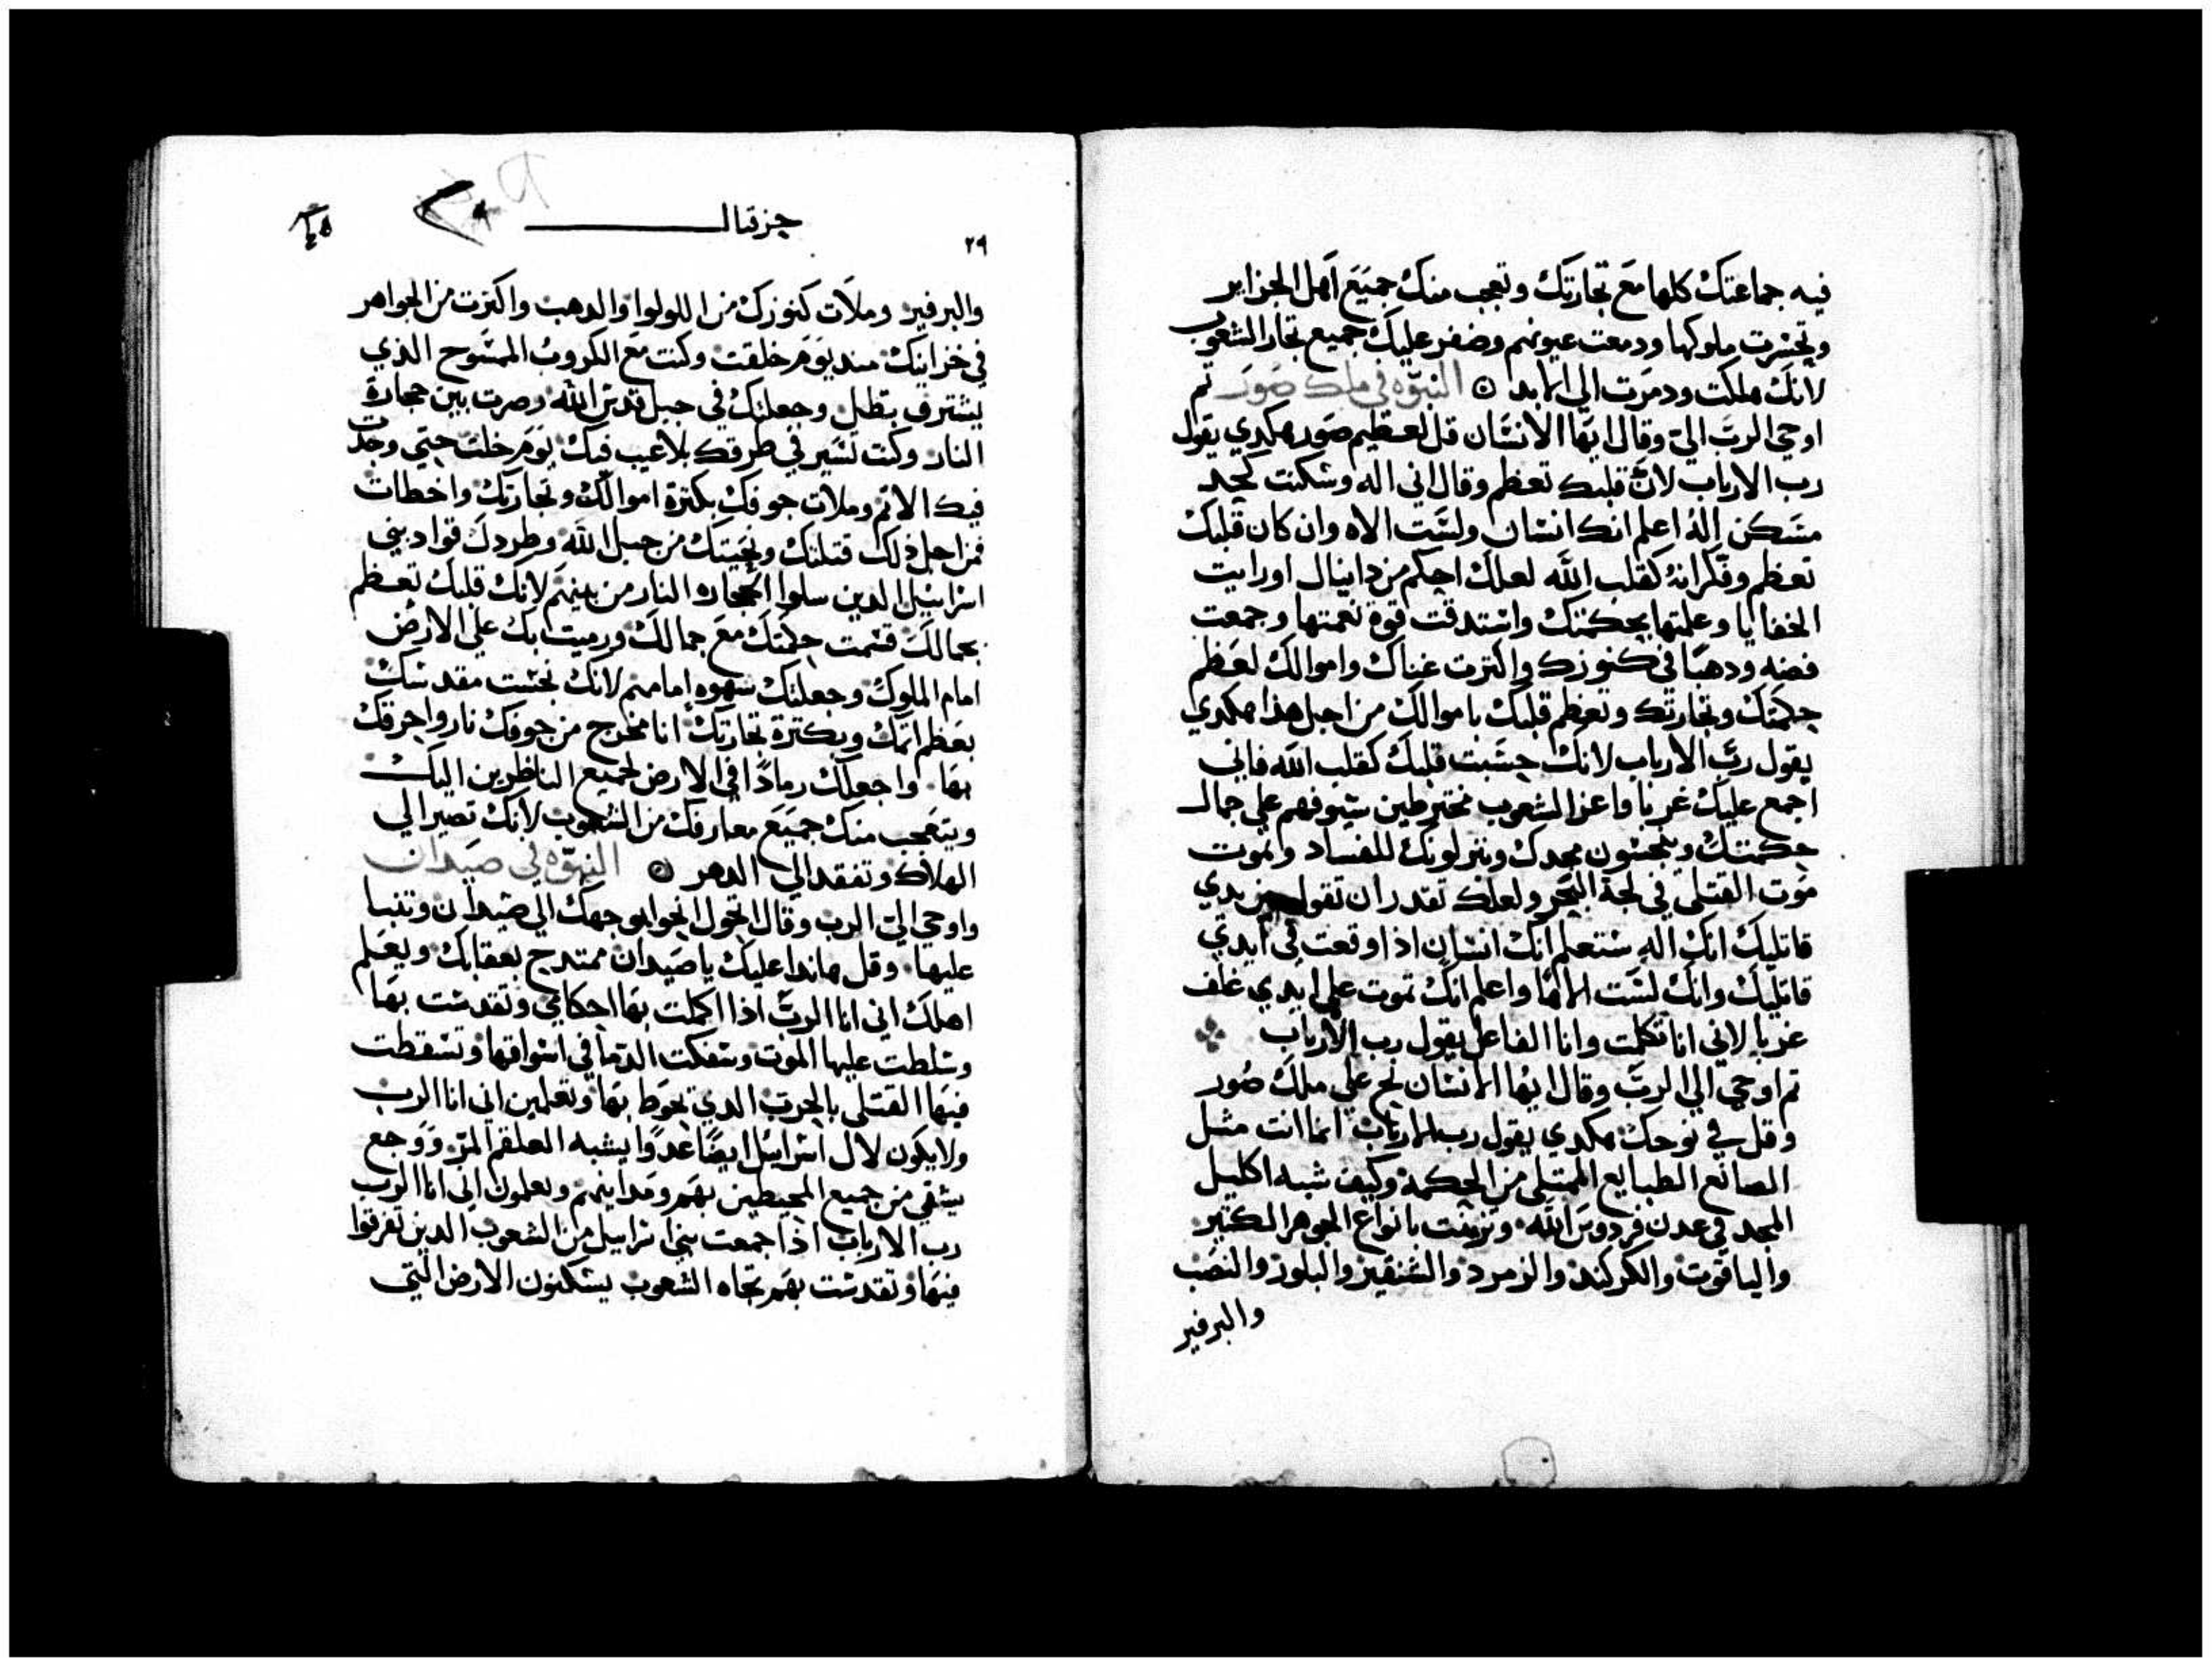 فيه جماعتك كلها مع تجارتك وتعجب منك جميع اهل الجزاير
وتحسرت ملوكها ودمعت عيونهم وضفر عليك جميع تجار الشعوب
لانك هلكت ودمرت الي الابد ۞ النبوه في ملك صور ثم
اوحي الرب الي وقال ايها الانسان قل لعظيم صور هكدي يقول
رب الارباب لان قلبك تعظم وقال اني اله وسكنت كمجد
مسكن اله اعلم انك انسان ولست الاه وان كان قلبك
تعظم وفكر انه كقلب الله لعلك احكم من دانيال اورايت
الخفايا وعلمتها بحكمتك واستدقت قوة نعمتها وجمعت
فضه ودهبا في كنوزك واكترت غناك واموالك لعظم
حكمتك وتجارتك وتعظم قلبك باموالك من اجل هذا هكدي
يقول رب الارباب لانك حسبت قلبك كقلب الله فاني
اجمع عليك غربا واعز الشعوب مخترطين سيوفهم علي جمال
حكمتك وينجسون مجدك وينزلونك للفساد وتموت
موت القتلي في لجة البحر ولعلك تقدر ان تقول بين يدي
قاتليك انك اله ستعلم انك انسان اذا وقعت في ايدي
قاتليك وانك لست الاها واعلم انك تموت علي ايدي غلف
غربا لاني انا تكلمت وانا الفاعل يقول رب الارباب
تم اوحي الي الرب وقال ايها الانسان نح علي ملك صور
وقل في نوحك هكدي يقول رب الارباب انما انت مثل
الصانع الطبايع الممتلي من الحكمة وكيف شبه اكليل
المجد في عدن فردوس الله وتزينت بانواع الجوهر الكتير
والياقوت والكركند والزمرد والشنفيز والبلور والنصب
والبرفير
حزقيال
٢٩
والبرفير وملات كنوزك من اللولوا والدهب واكترت من الجواهر
في خزاينك منديوم خلقت وكنت مع الكروب الممسوح الذي
يشترف بتظل وجعلتك في جبل قدس الله وصرت بين حجارة
النار وكنت تسير في طرقك بلاعيب فيك يوم خلقت حتي وجدت
فيك الاتم وملات جوفك بكترة اموالك وتجارتك واخطات
فمن اجل ذلك قتلتك ونحيتك من جبل الله وطردك قواد بني
اسراييل الدين سلوا الحجارة النار من بينهم لانك قلبك تعظم
بجمالك قسمت حكمتك مع جمالك ورميت بك علي الارض
امام الملوك وجعلتك سهوه امامهم لانك نجست مقدسك
بعظم اتمك وبكترة تجارتك انا مخرج من جوفك نار واحرقك
بها واجعلك رمادا في الارض لجميع الناظرين اليك
ويتعجب منك جميع معارفك من الشعوب لانك تصير الي
الهلاك وتفقد الي الدهر ۞ النبوه في صيدان
واوحي الي الرب وقال اتحول انحوا بوجهك الي صيدان وتنبا
عليها وقل هاندا عليك يا صيدان ممتدح بعقابك ويعلم
اهلك اني انا الرب اذا اكملت بها احكامي وتقدست بها
وسلطت عليها الموت وسفكت الدما في اسواقها وتسقطت
فيها القتلي بالحرب الدي تحوط بها وتعلمين اني انا الرب
ولايكون لال اسراييل ايضا عدوا يشبه العلقم المر ووجع
يشقي من جميع المحيطين بهم ومداينهم ويعلمون اني انا الرب
رب الارباب اذا جمعت بني اسراييل من الشعوب الدين تفرقوا
فيها وتقدست بهم تجاه الشعوب يسكنون الارض التي